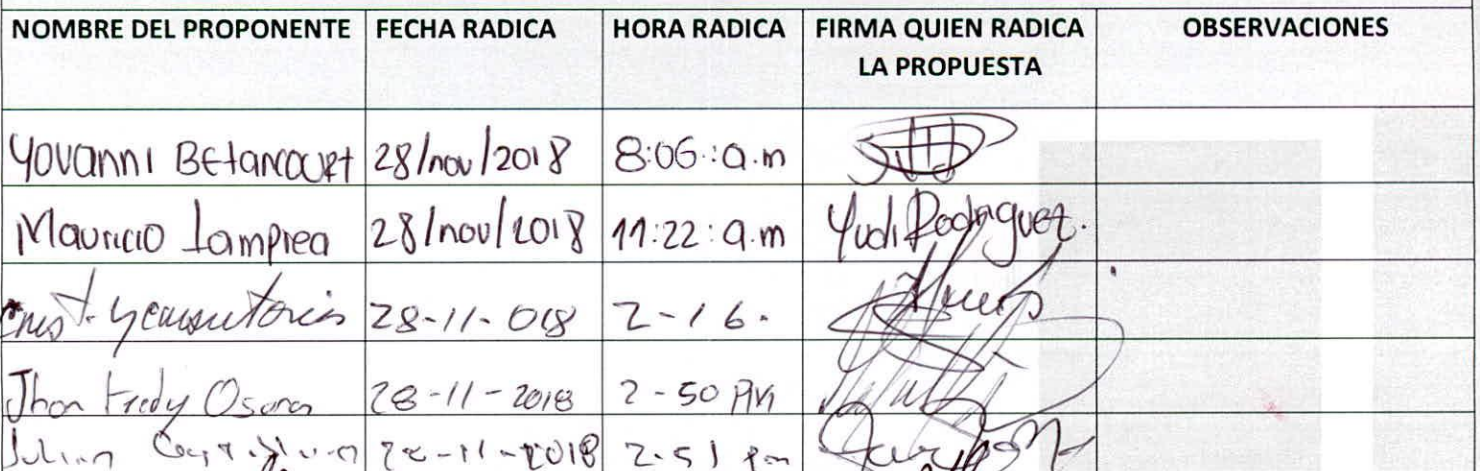 NOMBRE DEL PROPONENTE FECHA RADICA HORA RADICA FIRMA QUIEN RADICA OBSERVACIONES
LA PROPUESTA
Yovanni Betancourt 28/nov/2018 8:06:a.m
Mauricio Lamprea 28/nov/2018 11:22:a.m Yudi Rodriguez.
28-11-018 2-16.
Jhon Fredy 28-11-2018 2-50 PM
Julian 28-11-2018 2-51 pm